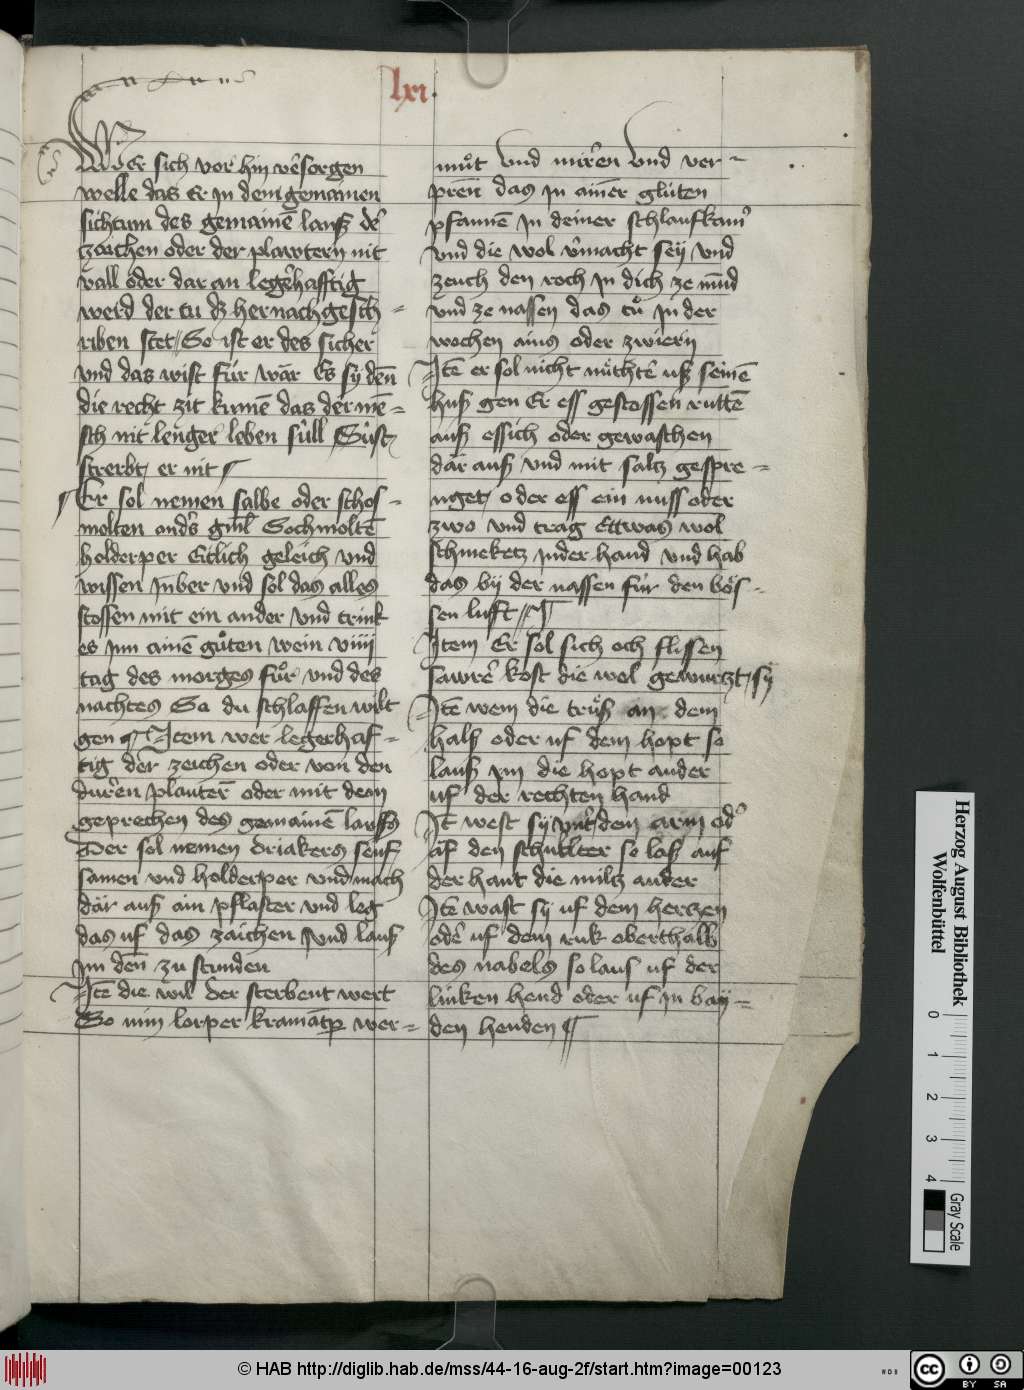 lxi.
Wer sich vor hin v̄sorgen
welle das Er jn dem gemainen
sichtum des gemainē lauff d̄
zaichen oder der plautern nit
vall oder dar an legerhafftig
werd der tu dz hernach gesch=
riben stet So ist er des sicher
vnd das wist für wār Es sy dēn
die recht zit kumē das der mē=
sch nit lenger leben süll Süst
sterbt er nit
Er sol nemen salbe oder
molten
holderper Etlich geleich vnd
wissen Jnber vnd sol das alles
stossen mit ein ander vnd trink
es jnn ainē gůten wein viiii
tag des morges für vnd des
nachtes So du schlaffen wilt
gen ¶ Item wer legerhaf=
tig der zeichen oder von den
dürēn plauterē oder mit dem
geprechen des gemainē lauffs
Der sol nemen driakers senf
samen vnd holderper vnd mach
där auß ain pflaster vnd leg
das uf das zaichen vnd lauß
jm dēn zu stunden
Itē die wil der sterbent wert
So nim lorper kramatp wer=
můt vnd mirēn vnd ver=
prēn das jn ainer glüten
pfannē jn deiner schlaufkamer
vnd die wol v̄macht sey vnd
zeuch den roch jn dich ze mūnd
vnd ze nassen das tů jn der
wochen ains oder zwiern
Itē er sol nicht nüchtē uß seinē
huß gen Er ess gestossen ruttē
auß essich oder gewaschen
där auß vnd mit saltz gespre=
nget oder ess ein nuss oder
zwo vnd trag Ettwas wol
schmeketz jnder hand vnd hab
das bij der nassen für den bös=
sen lufft ¶
Item Er sol sich och flissen
sawrē kost die wol gewurtzt sy
Itē wem die trüß an dem
halß oder uf dem hopt so
lauß jm die hopt ander
uf der rechten hand
Itē west sy vnter dem arm od̄
af den schultter so loß auf
der hant die miltz ander
Itē wast sy uf dem hertzen
odē uf dem ruk oberthalb
des nabels so laus uf der
linken hend oder uf jn bay=
den henden ¶
Herzog August Bibliothek
Wolfenbüttel
0 1 2 3 4
Gray Scale
© HAB http://diglib.hab.de/mss/44-16-aug-2f/start.htm?image=00123
cc BY SA